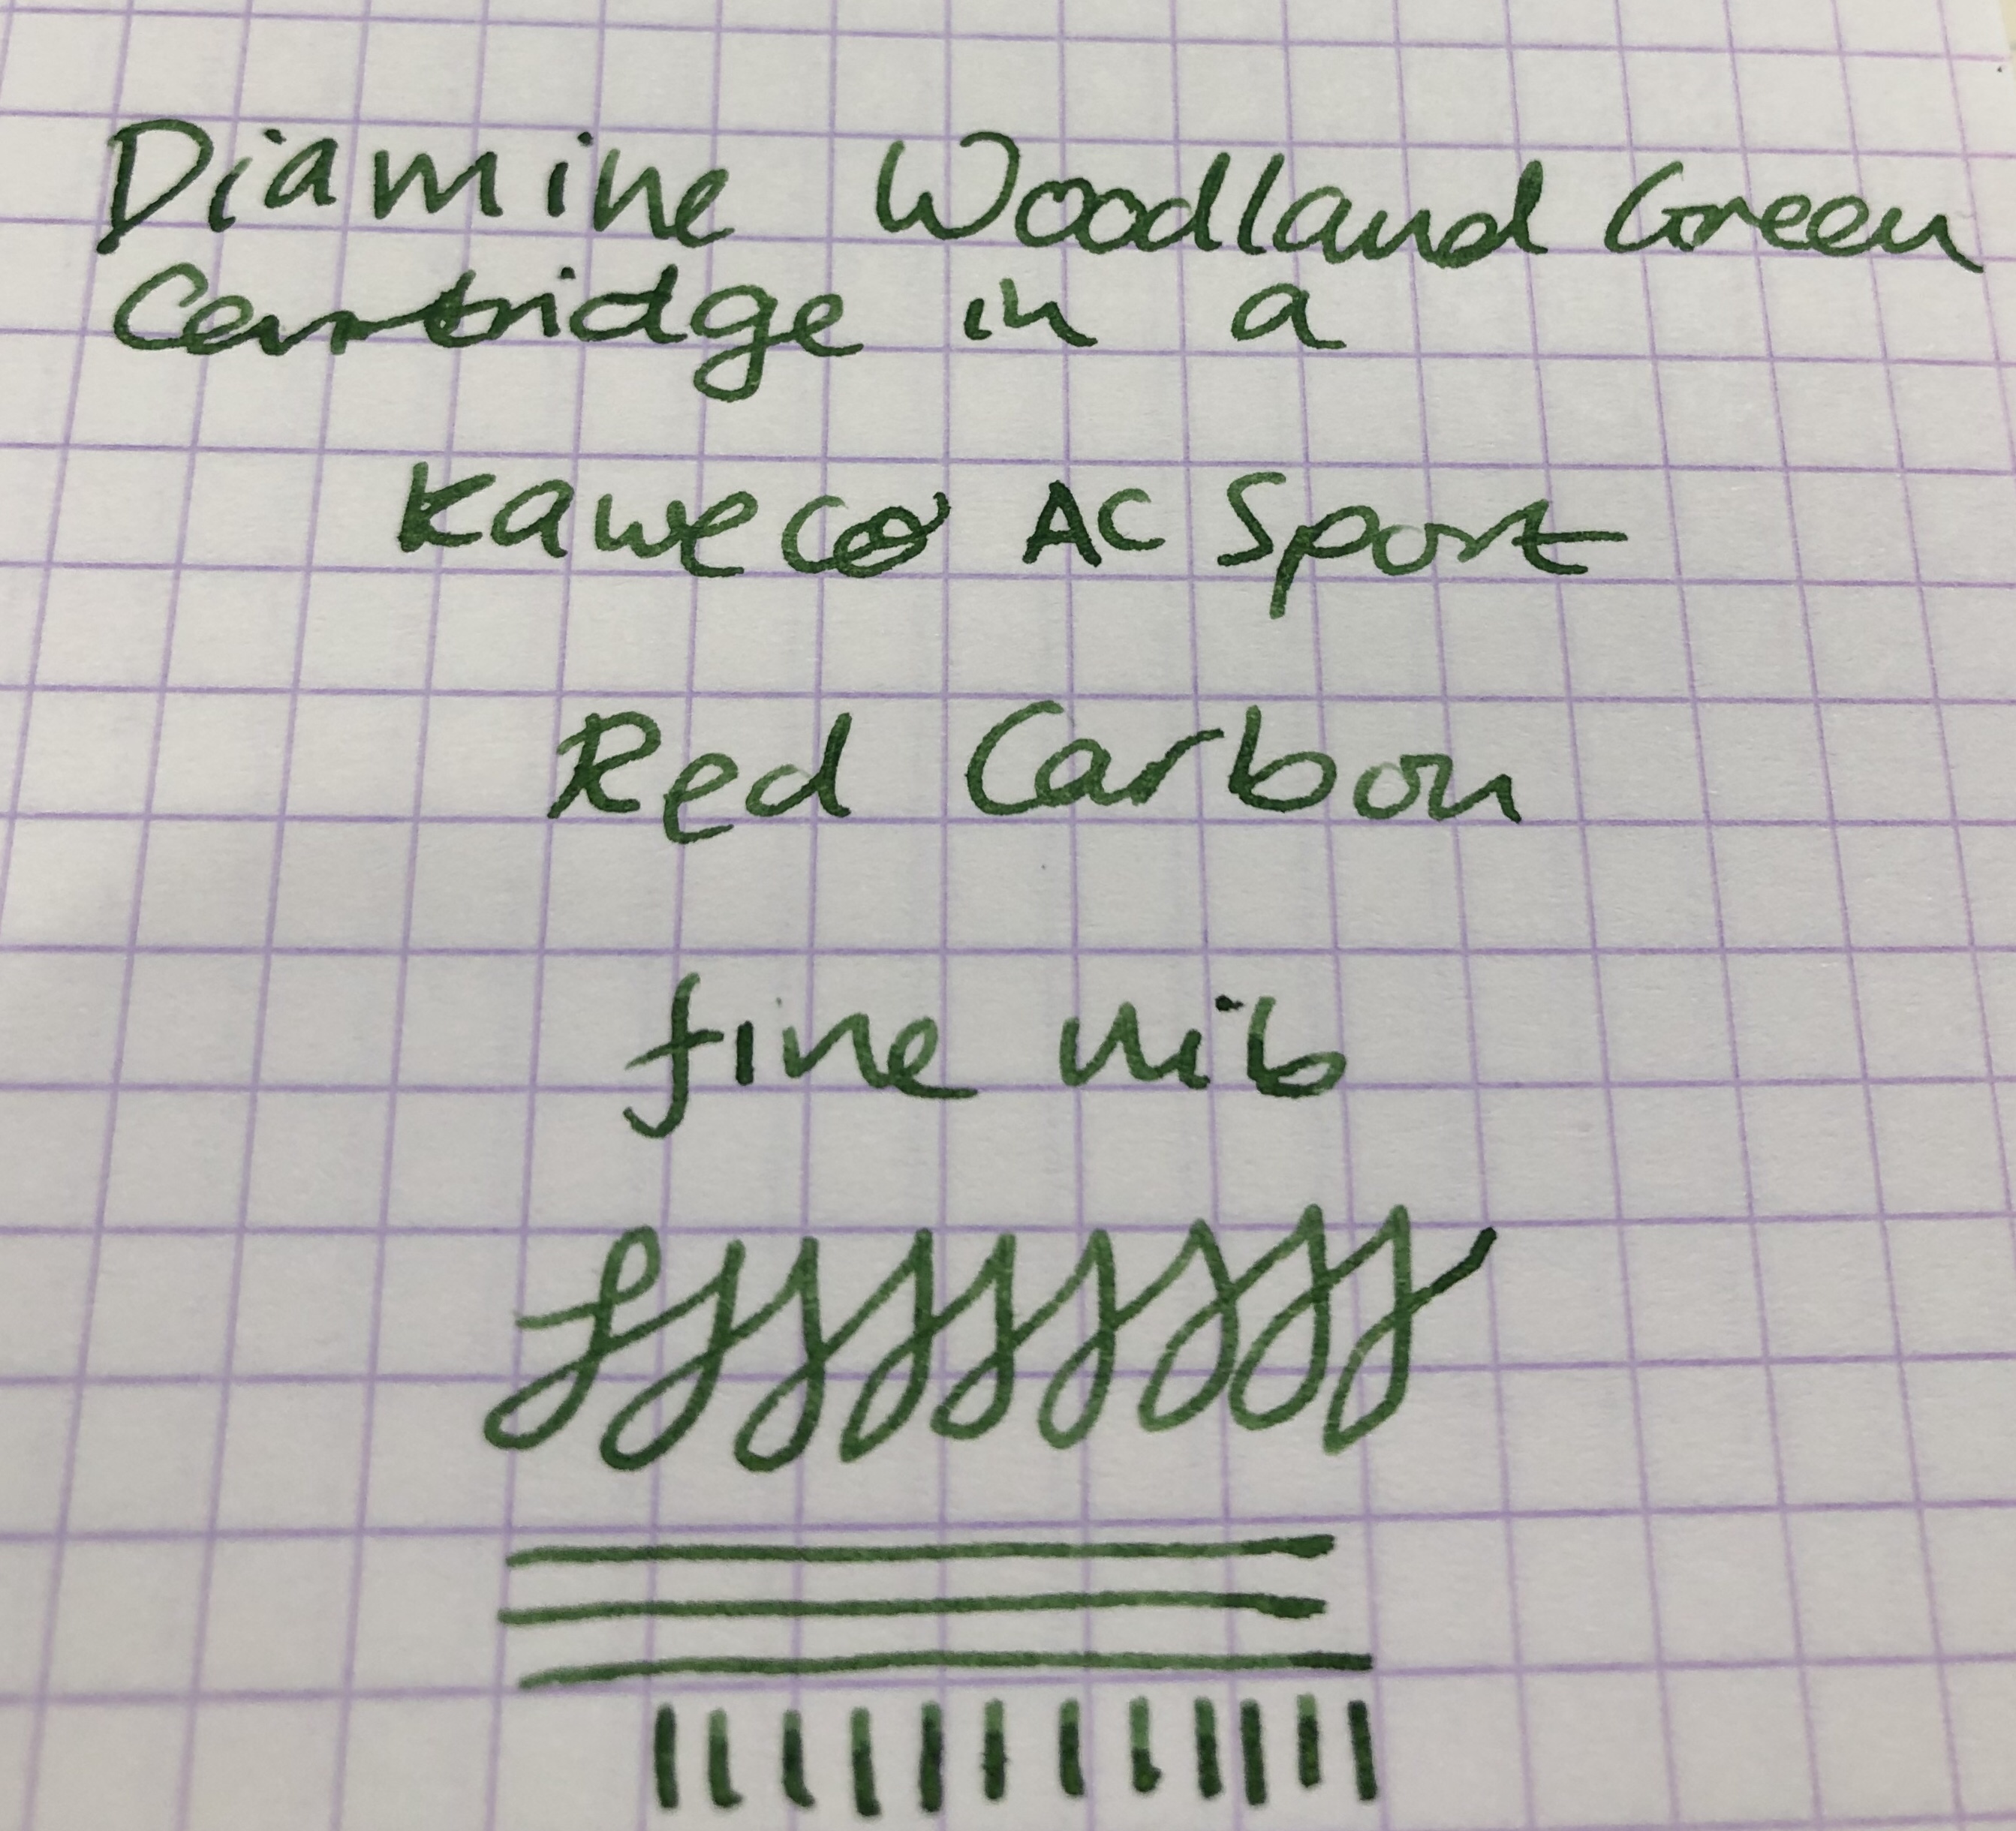 Diamine Woodland Green
Cartridge in a
Kaweco AC Sport
Red Carbon
fine nib